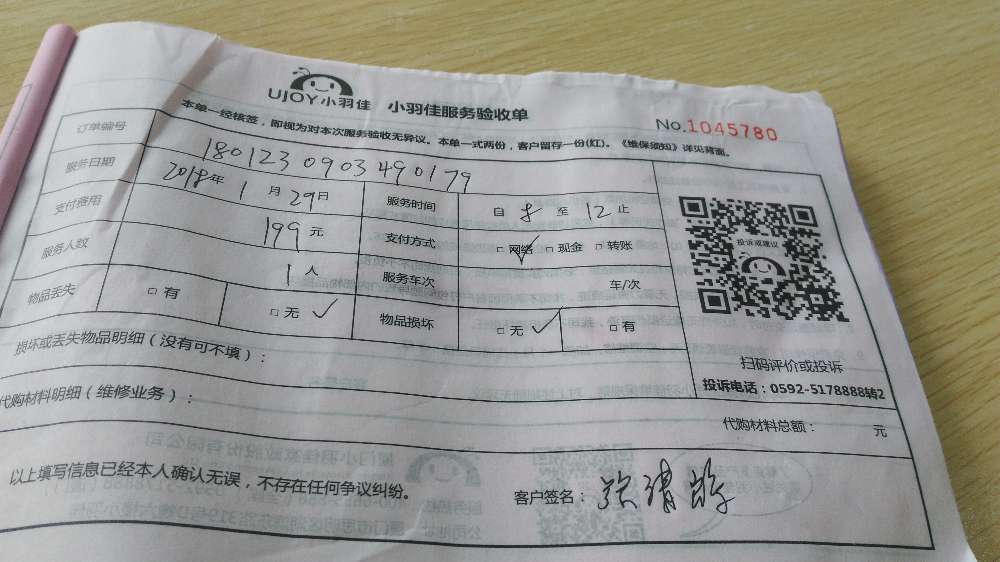 UJOY小羽佳 小羽佳服务验收单
No.1045780
本单一经核签，即视为对本次服务验收无异议。本单一式两份，客户留存一份(红)。《维保须知》详见背面。
订单编号 1801230903490179
服务日期 2018年1月29日 服务时间 自8至12止
支付费用 199元 支付方式 □网络✓ □现金 □转账
服务人数 1人 服务车次 车/次
物品丢失 □有 □无✓ 物品损坏 □无✓ □有
投诉或建议
扫码评价或投诉
投诉电话：0592-5178888转2
损坏或丢失物品明细（没有可不填）：
代购材料明细（维修业务）： 代购材料总额： 元
以上填写信息已经本人确认无误，不存在任何争议纠纷。 客户签名：张清